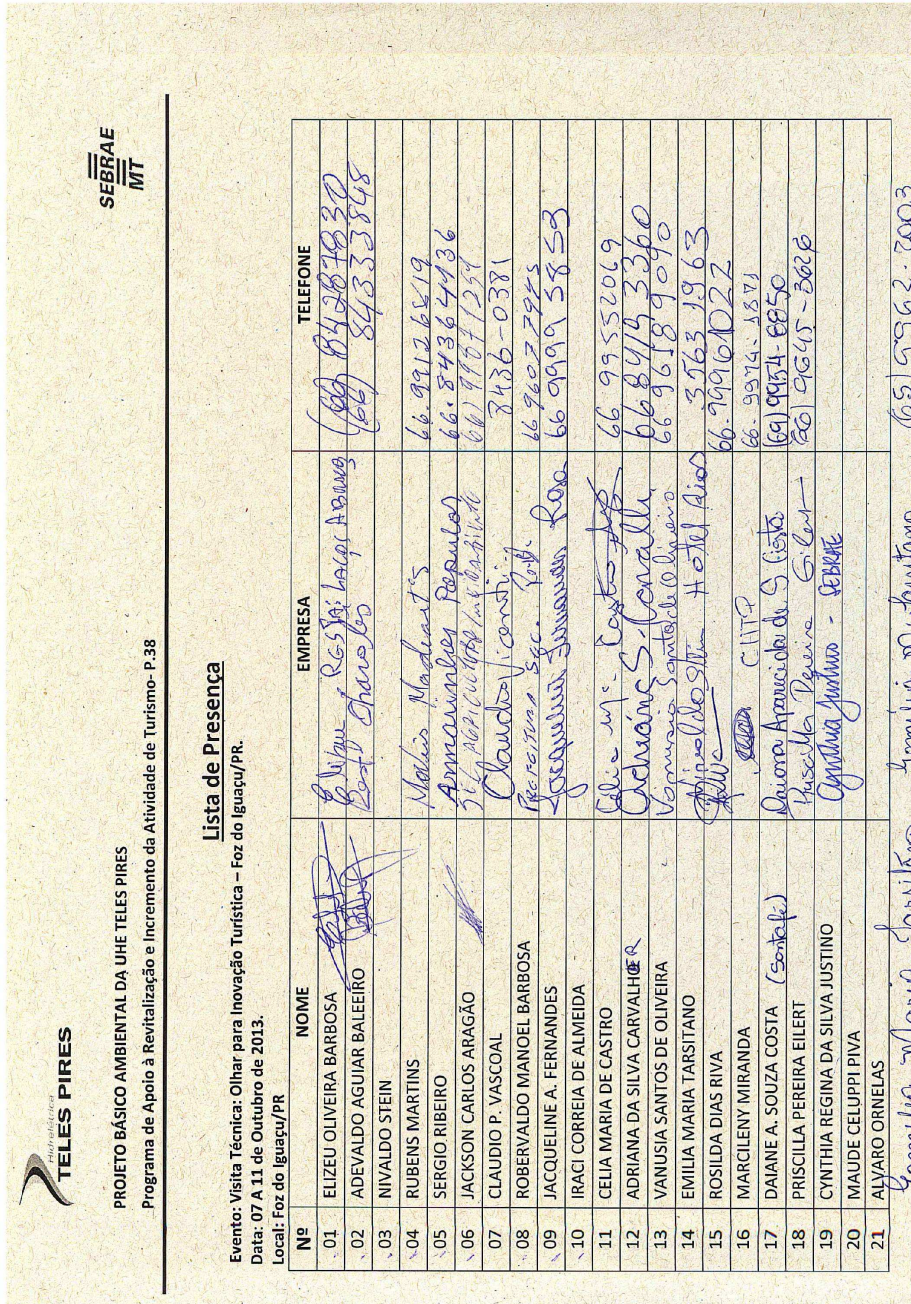 Hidrelétrica
TELES PIRES
SEBRAE
MT
PROJETO BÁSICO AMBIENTAL DA UHE TELES PIRES
Programa de Apoio à Revitalização e Incremento da Atividade de Turismo- P.38
Lista de Presença
Evento: Visita Técnica: Olhar para Inovação Turística – Foz do Iguaçu/PR.
Data: 07 A 11 de Outubro de 2013.
Local: Foz do Iguaçu/PR
Nº NOME EMPRESA TELEFONE
01 ELIZEU OLIVEIRA BARBOSA (66) 84287830
02 ADEVALDO AGUIAR BALEEIRO (66) 84333848
03 NIVALDO STEIN
04 RUBENS MARTINS 66.99126519
05 SERGIO RIBEIRO Armarinhos Popular 66.84364136
06 JACKSON CARLOS ARAGÃO 66) 99671254
07 CLAUDIO P. VASCOAL Claudio 8436-0381
08 ROBERVALDO MANOEL BARBOSA Prefeitura 6696022945
09 JACQUELINE A. FERNANDES Jacqueline Fernandes Rosa 66 9999 5853
10 IRACI CORREIA DE ALMEIDA
11 CELIA MARIA DE CASTRO Celia Castro 66 99552069
12 ADRIANA DA SILVA CARVALHOER Adriana S. 66 8415 3360
13 VANUSIA SANTOS DE OLIVEIRA Vanusia Santos de Oliveira 66 96189090
14 EMILIA MARIA TARSITANO Hotel Rios 3563 1963
15 ROSILDA DIAS RIVA 66. 99961022
16 MARCILENY MIRANDA 66. 9974-1371
17 DAIANE A. SOUZA COSTA (Santa fé) Daiana Aparecida de S. Costa (69) 9954-8850
18 PRISCILLA PEREIRA EILERT Priscilla Pereira Eilert (66) 9645-3626
19 CYNTHIA REGINA DA SILVA JUSTINO Cynthia Justino - SEBRAE
20 MAUDE CELUPPI PIVA
21 ALVARO ORNELAS
Emilia Maria Tarsitano Emilia M. Tarsitano (65) 9962.2003